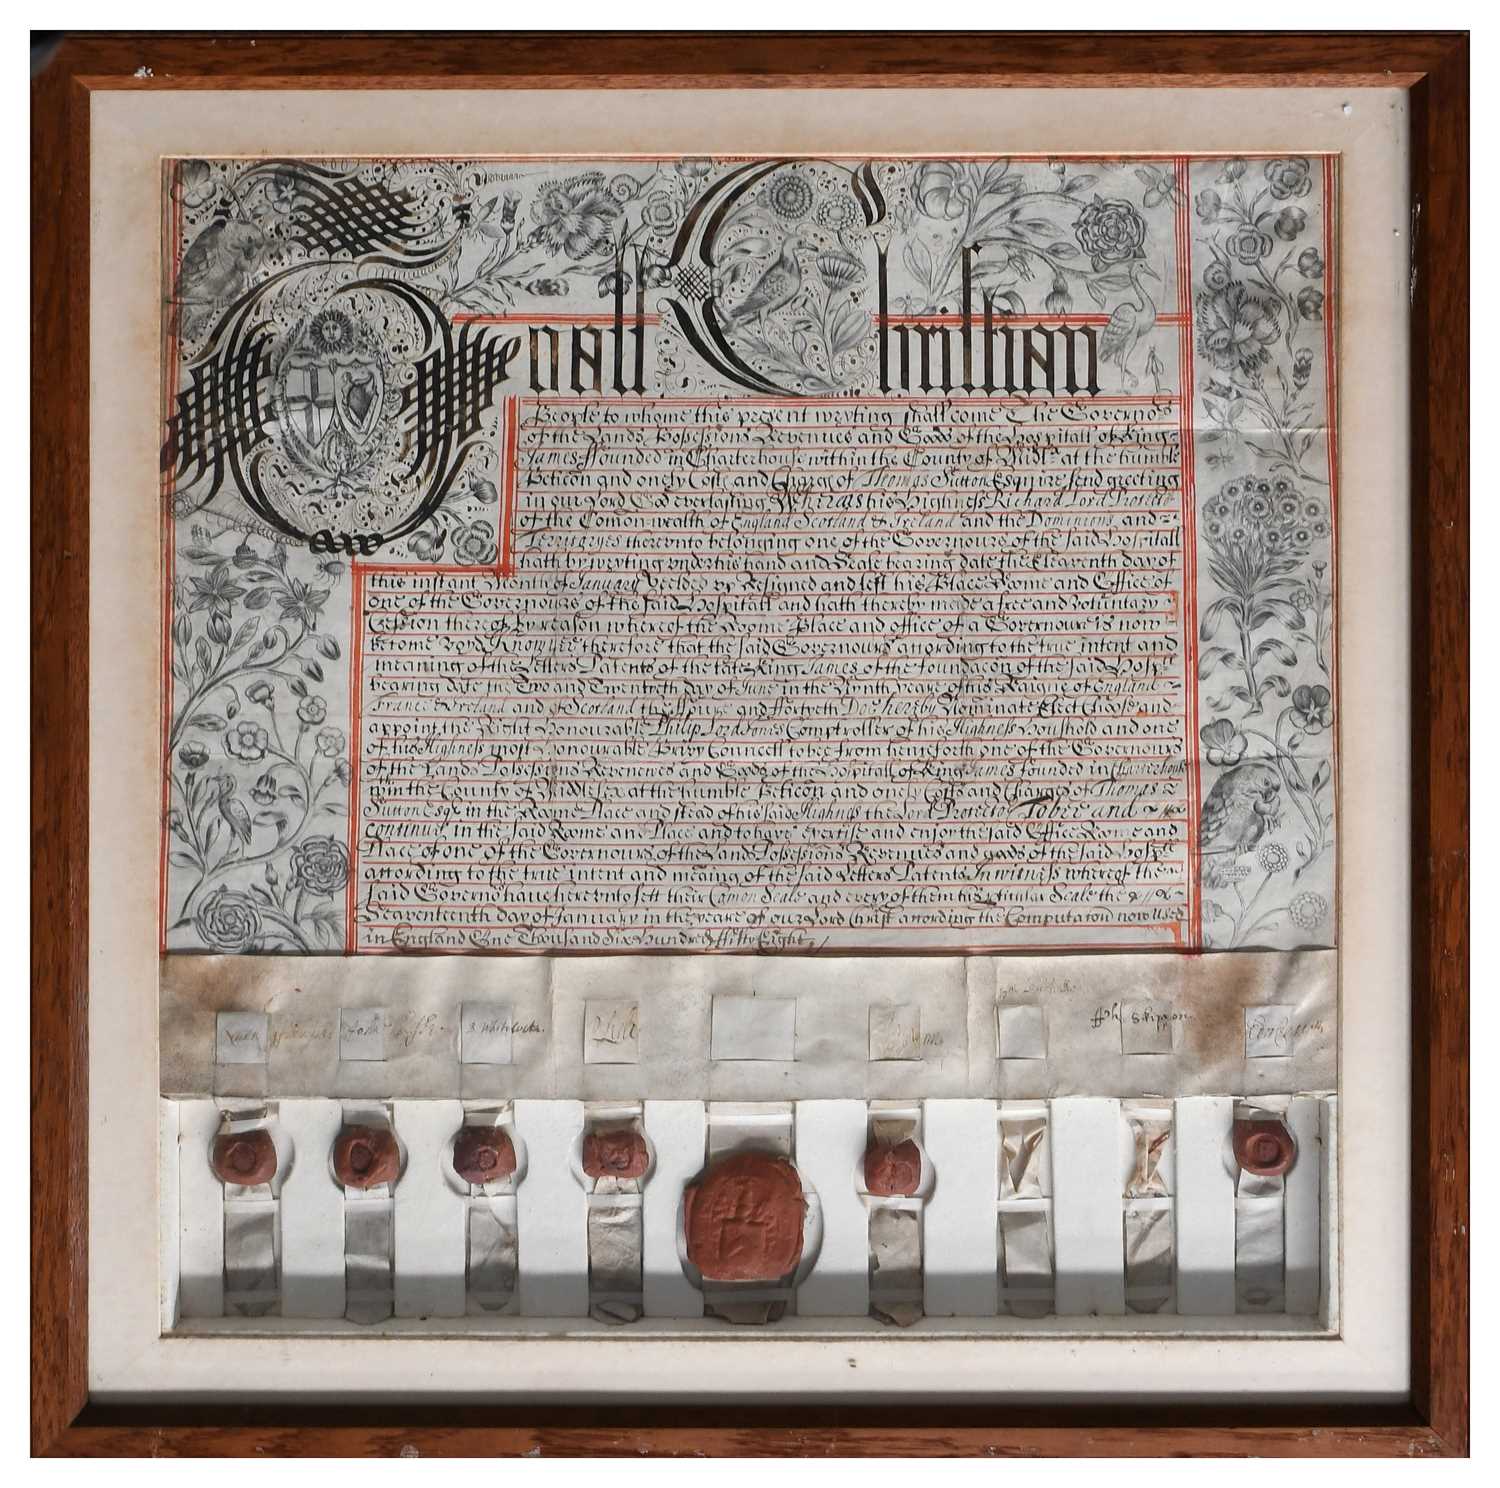 To all Christian
People to whome this present wryting shall come The Governors
of the Lands Possessions Revenues and Goods of the Hospitall of King
James ffounded in Charterhouse within the County of Midds at the humble
Peticon and onely Costs and Charges of Thomas Sutton Esquire send greeting
in our Lord God everlasting Whereas his Highness Richard Lord Protector
of the Comonwealth of England Scotland & Ireland and the Dominions and
Territoryes thereunto belonging one of the Governours of the said Hospitall
hath by wryting under his hand and Seale bearing date the Eleaventh day of
this instant Month of January Yeelded up Resigned and left his Place Roome and Office of
one of the Governours of the said Hospitall and hath thereby made a free and voluntary
Cession thereof By reason whereof the Roome Place and office of a Governour is now
become voyd Know yee therefore that the said Governours according to the true intent and
meaning of the Letters Patents of the late King James of the foundacon of the said Hospll
bearing date the Two and Twentieth day of June in the Nynth yeare of his Raigne of England
France & Ireland and of Scotland the ffoure and ffortyeth Doe hereby Nominate Elect Choose and
appoint the Right Honourable Philip Lord Jones Comptroller of his Highness Houshold and one
of his Highness most Honourable Privy Councell to bee from henceforth one of the Governours
of the Lands Possessions Revenewes and Goods of the Hospitall of King James founded in Charterhouse
wthin the County of Middlesex at the humble Peticon and onely Costs and Charges of Thomas
Sutton Esqr in the Roome Place and stead of his said Highness the Lord Protector To bee and
continue in the said Roome and Place and to have exercise and enjoy the said Office Roome and
Place of one of the Governours of the Lands Possessions Revenues and goods of the said Hospll
according to the true intent and meaning of the said Letters Patents In witness whereof the
said Governors have hereunto sett their Comon Seale and every of them his perticular Seale the
Seaventeenth day of January in the yeare of our Lord Christ according the Computation now Used
in England One Thousand Six Hundred ffifty Eight
B Whitelocke
Ph: Skippon